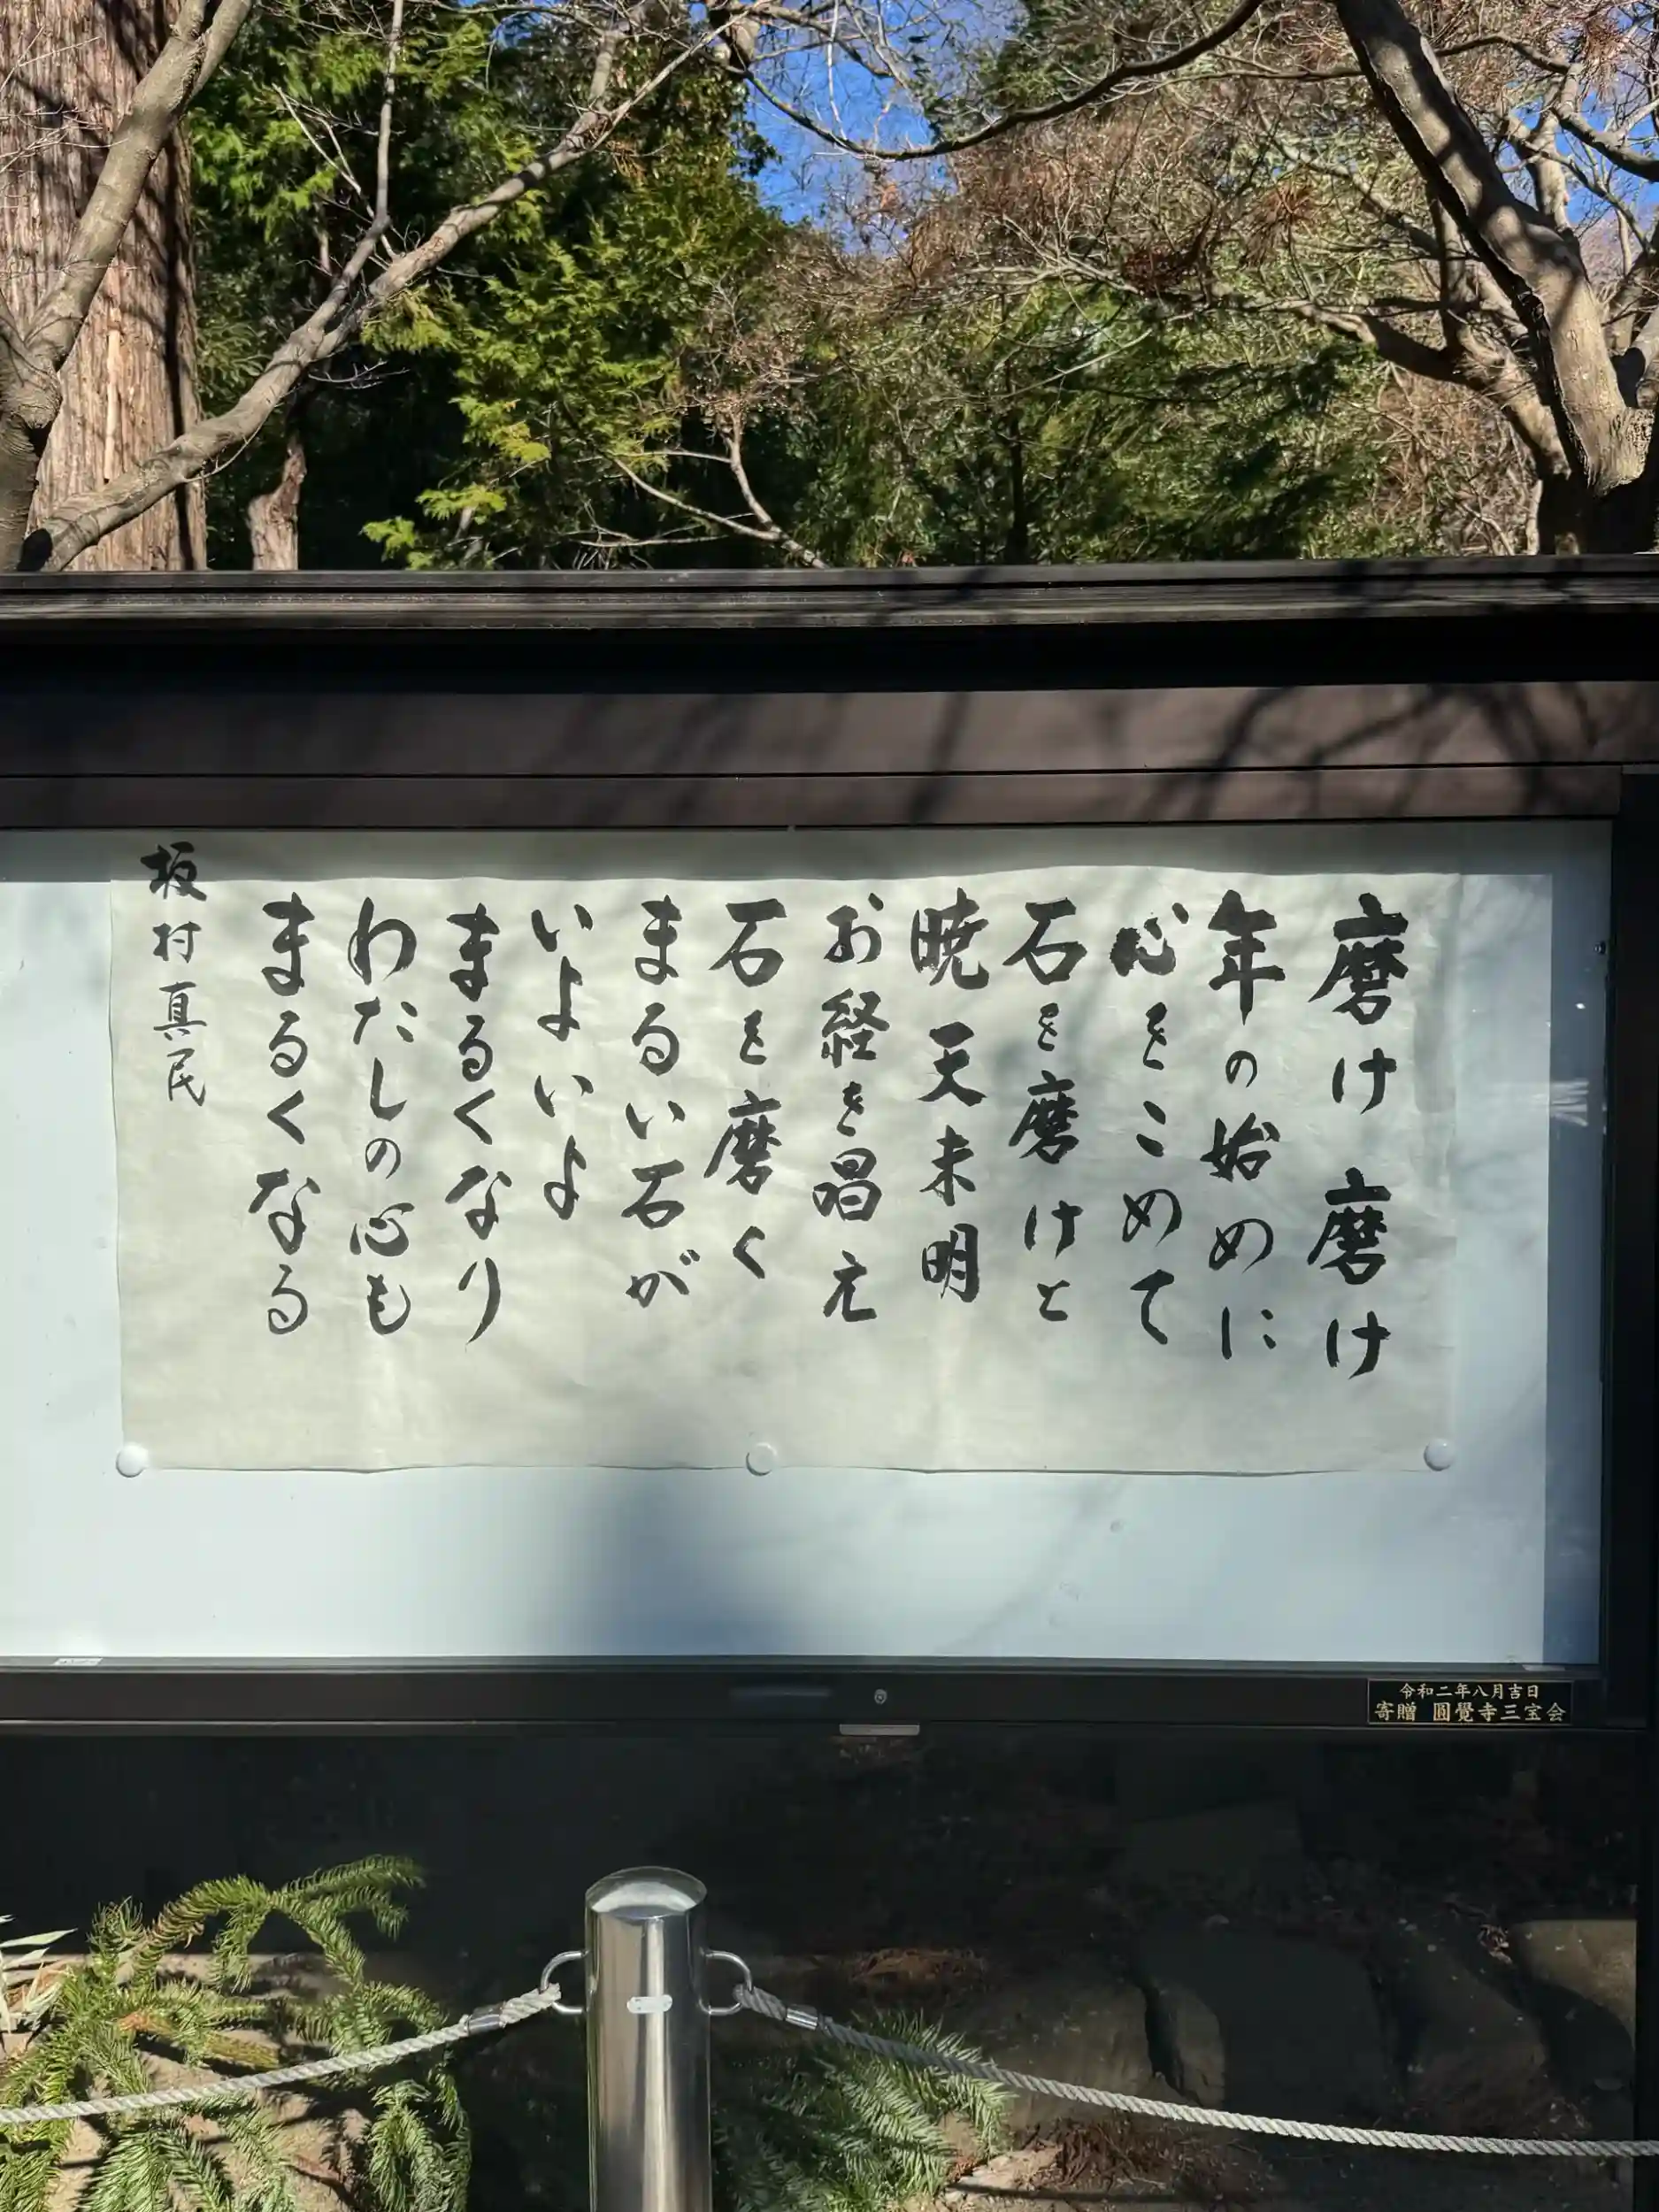 磨け磨け
年の始めに
心をこめて
石を磨けと
暁天未明
お経を唱え
石を磨く
まるい石が
いよいよ
まるくなり
わたしの心も
まるくなる
坂村真民
令和二年八月吉日
寄贈 圓覺寺三宝会